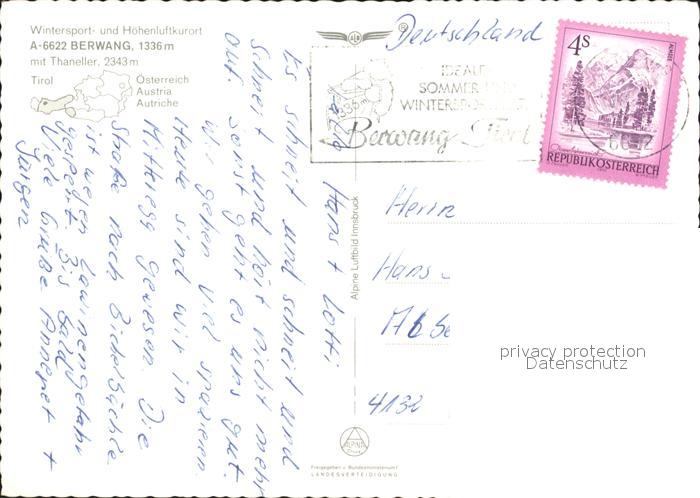 Wintersport- und Höhenluftkurort
A-6622 BERWANG, 1336 m
mit Thaneller, 2343 m
Tirol
Österreich
Austria
Autriche
Hans + Lotti,
Es schneit und schneit und
schneit und hört nicht mehr
auf. Sonst geht es uns gut.
Wir gehen viel spazieren
Heute sind wir in
Mitteregg gewesen. Die
Straße nach Bichelbächle
ist wegen Lawinengefahr
gesperrt. Bis bald
Viele Grüße Annegret +
Jürgen
Alpine Luftbild Innsbruck
ALPINE
Freigegeben v. Bundesministerium f.
LANDESVERTEIDIGUNG
Deutschland
IDEALE
SOMMER UND
WINTERSPORT
Berwang Tirol
4S
ALMSEE
REPUBLIK ÖSTERREICH
Herrn
Hans
4132
privacy protection
Datenschutz